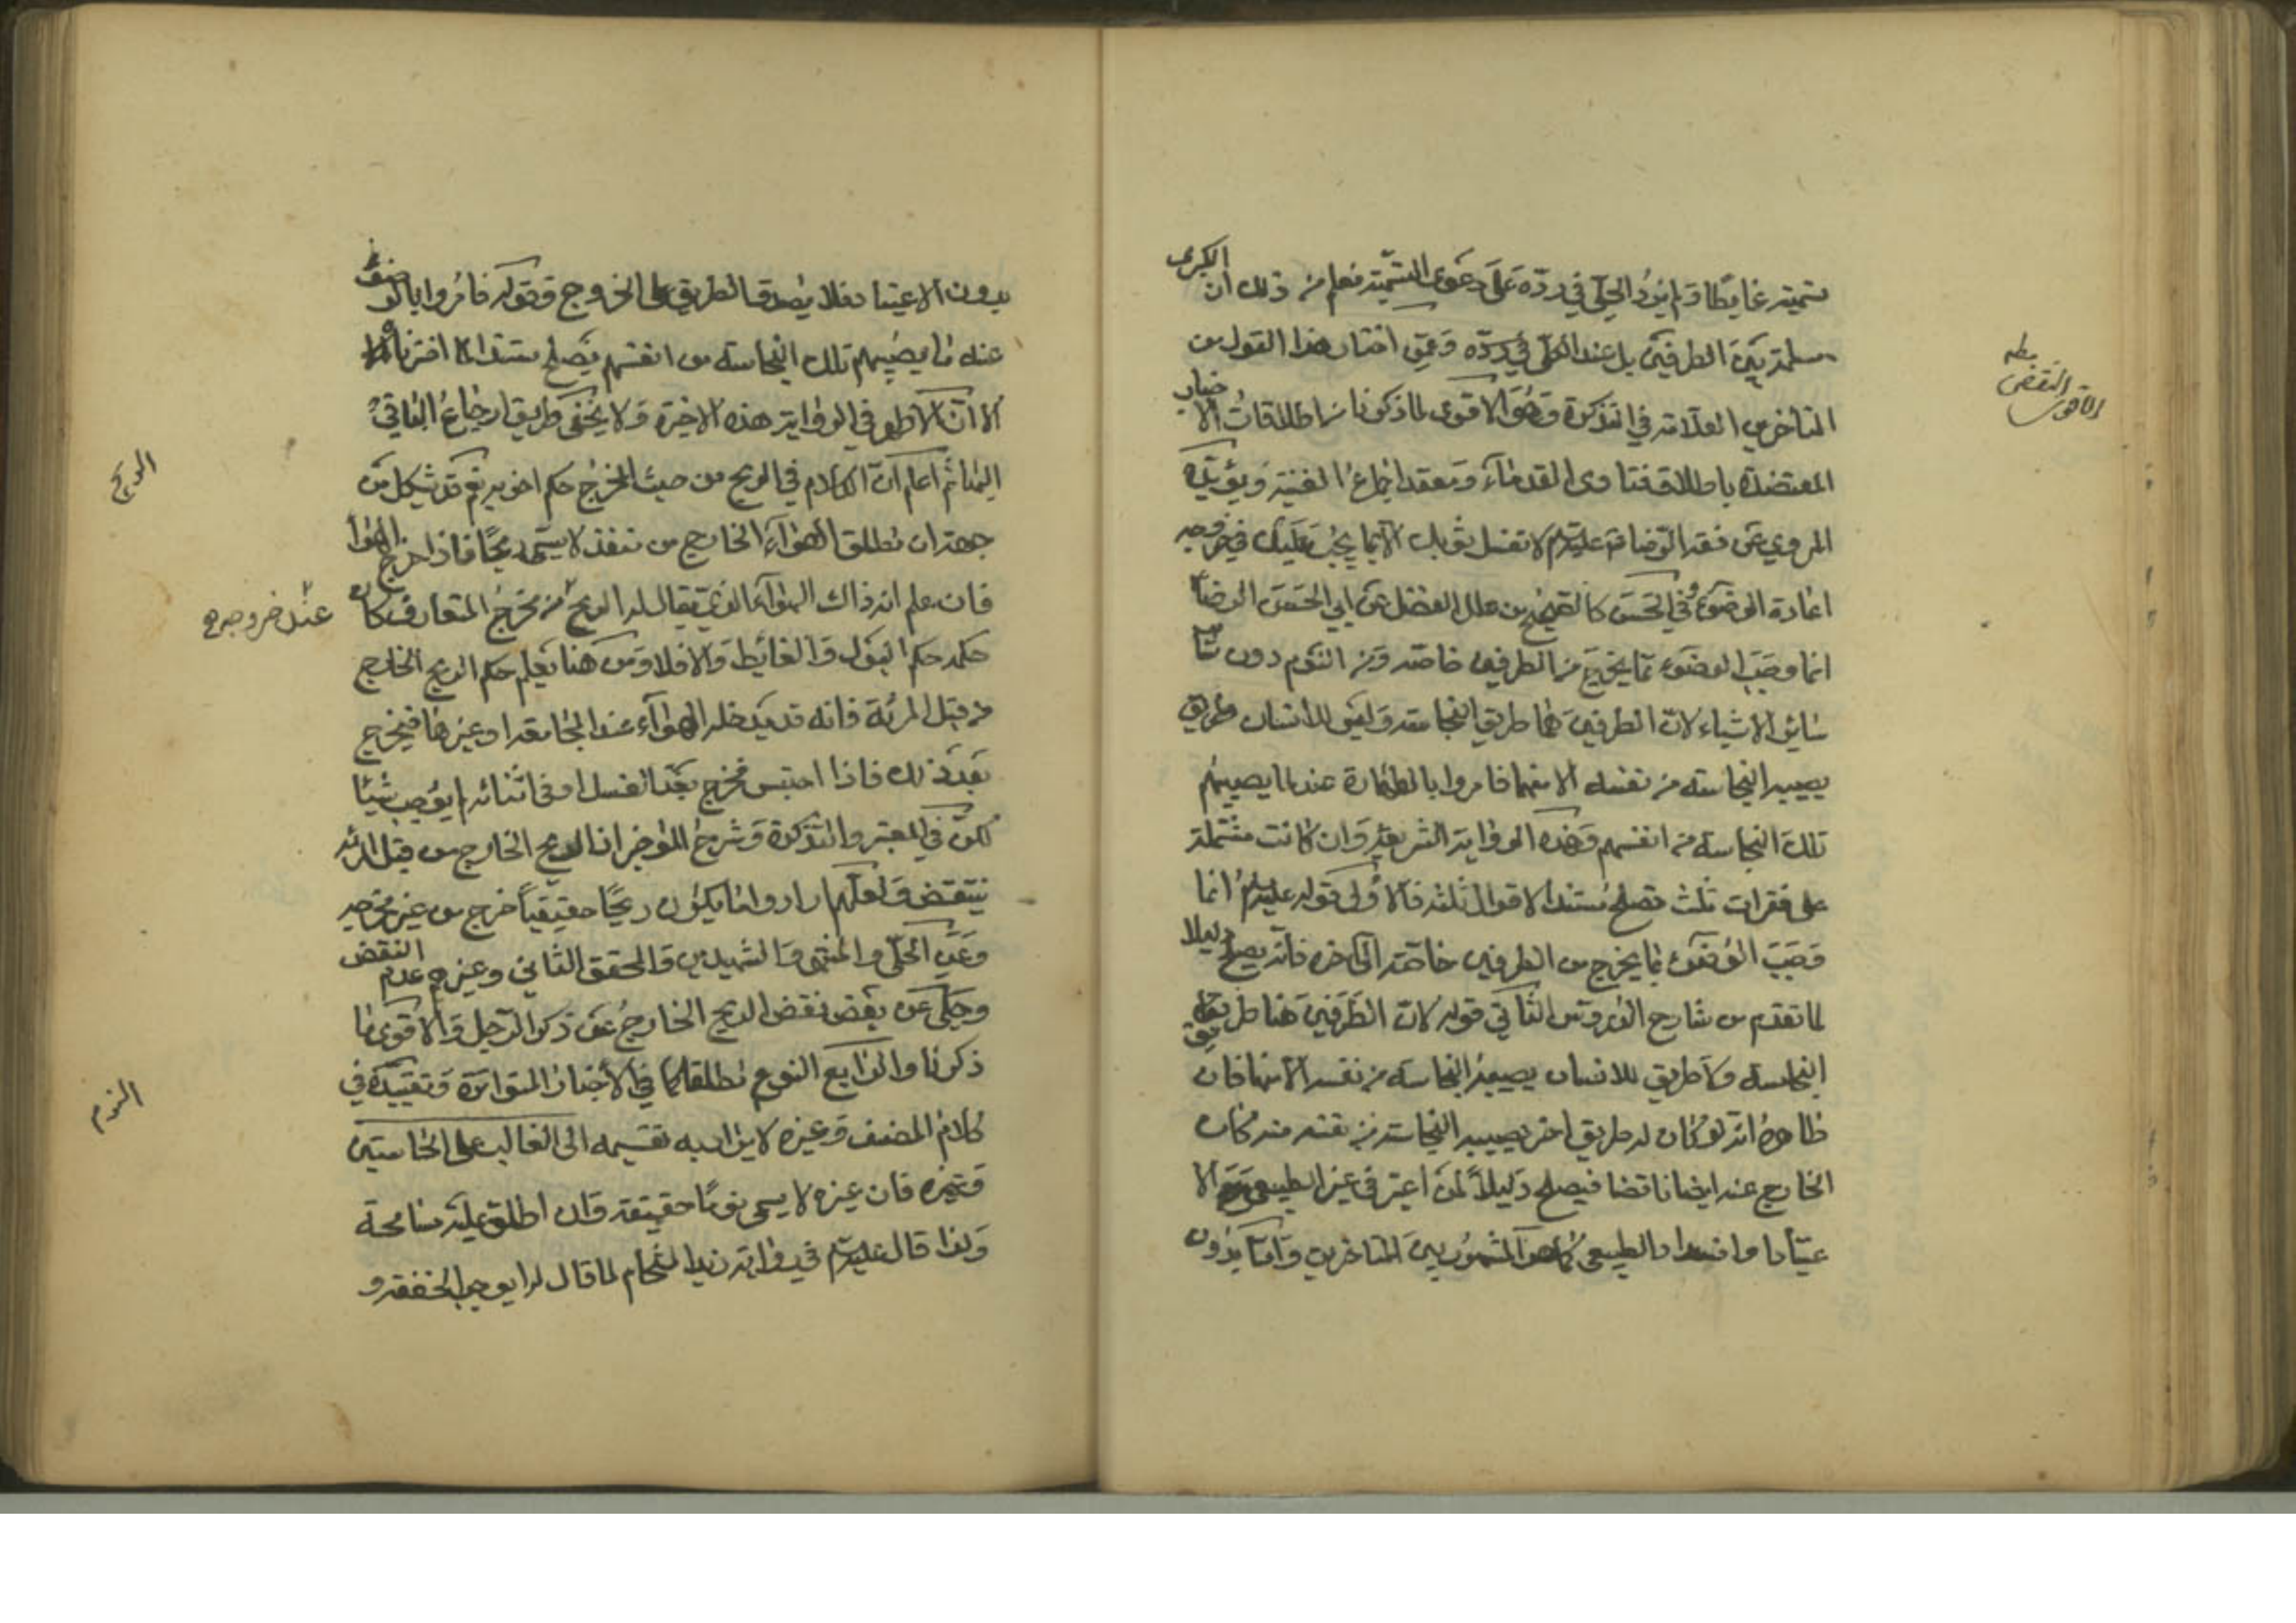 تسميته غايطا ولم يزد الحلي في رده على دعوى التسمية فعلم من ذلك ان الكبرى
مسلمة بين الطرفين بل عند الكل في رده وممن اختار هذا القول من
المتأخرين العلامة في التذكرة وهو الاقوى لما ذكرنا من اطلاقات الاخبار
المعتضدة باطلاق فتاوى القدماء ومعقد اجماع الغنية ويؤيده
المروي عن فقه الرضا قوله عليه السلام لا تغسل ثوبك الا مما يجب عليك في خروجه
اعادة الوضوء وفي الحسن كالصحيح من علل الفضل عن ابي الحسن الرضا
انما وجب الوضوء مما يخرج من الطرفين خاصة ومن النوم دون
سائر الاشياء لان الطرفين هما طريق النجاسة وليس للانسان طريق
يصيبه النجاسة من نفسه الا منهما فامروا بالطهارة عند ما يصيبهم
تلك النجاسة من انفسهم وهذه الرواية الشريفة وان كانت مشتملة
على فقرات ثلث تصلح مستندا لاقوال ثلثة فالاولى قوله عليه السلام انما
وجب الوضوء مما يخرج من الطرفين خاصة الى اخره فانه يصلح دليلا
لما تقدم من شارح الدروس الثاني قوله لان الطرفين هما طريق
النجاسة ولا طريق للانسان يصيبه النجاسة من نفسه الا منها فان
ظاهره انه لو كان له طريق اخر يصيبه النجاسة من نفسه منه كان
الخارج عنه ايضا ناقضا فيصلح دليلا لمن اعتبر في غير الطبيعي الا
عتياد او انسداد الطبيعي كما هو المشهور بين المتأخرين واما بدون
النقض
بدون الاعتياد فلا يصدق الطريق على الخروج وقوله فامروا بالوضوء
عنه ما يصيبهم تلك النجاسة من انفسهم يصلح مستندا لما اخترناه
الا ان الاظهر في الرواية هذه الاخيرة ولا يخفى طريق ارجاع الباقي
اليها ثم اعلم ان الكلام في الريح من حيث المخرج حكم اخويه نعم قد يشكل من
جهة ان مطلق الهواء الخارج من منفذ لا يسمى ريحا فاذا خرج الهواء
فان علم انه ذاك الهواء الذي يقال له الريح من مخرج المتعارف كان
حكمه حكم البول والغائط والا فلا ومن هنا يعلم حكم الريح الخارج
من قبل المرئة فانه قد يدخله الهواء عند المجامعة او غيرها فيخرج
بعد ذلك فاذا احتبس فخرج بعد الغسل او في اثنائه لم يوجب شيئا
لكن في المعتبر والتذكرة وشرح الموجز ان الريح الخارج من قبل المرئة
ينتقض ولعلهم ارادوا ما يكون ريحا حقيقيا خرج من غير مخرجه
وعن الحلي والمنتهى والشهيدين والمحقق الثاني وغيرهم عدم النقض
وحكي عن بعض نقض الريح الخارج عن ذكر الرجل والاقوى ما
ذكرنا والرابع النوم مطلقا كما في الاخبار المتواترة وتقييده في
كلام المصنف وغيره لا يراد به تقسيمه الى الغالب على الحاستين
وغيره فان غيره لا يسمى نوما حقيقة وان اطلق عليه مسامحة
ولذا قال عليه السلام في رواية زيد الشحام لما قال له ايوجب الخفقة و
الريح
عند خروجه
النوم